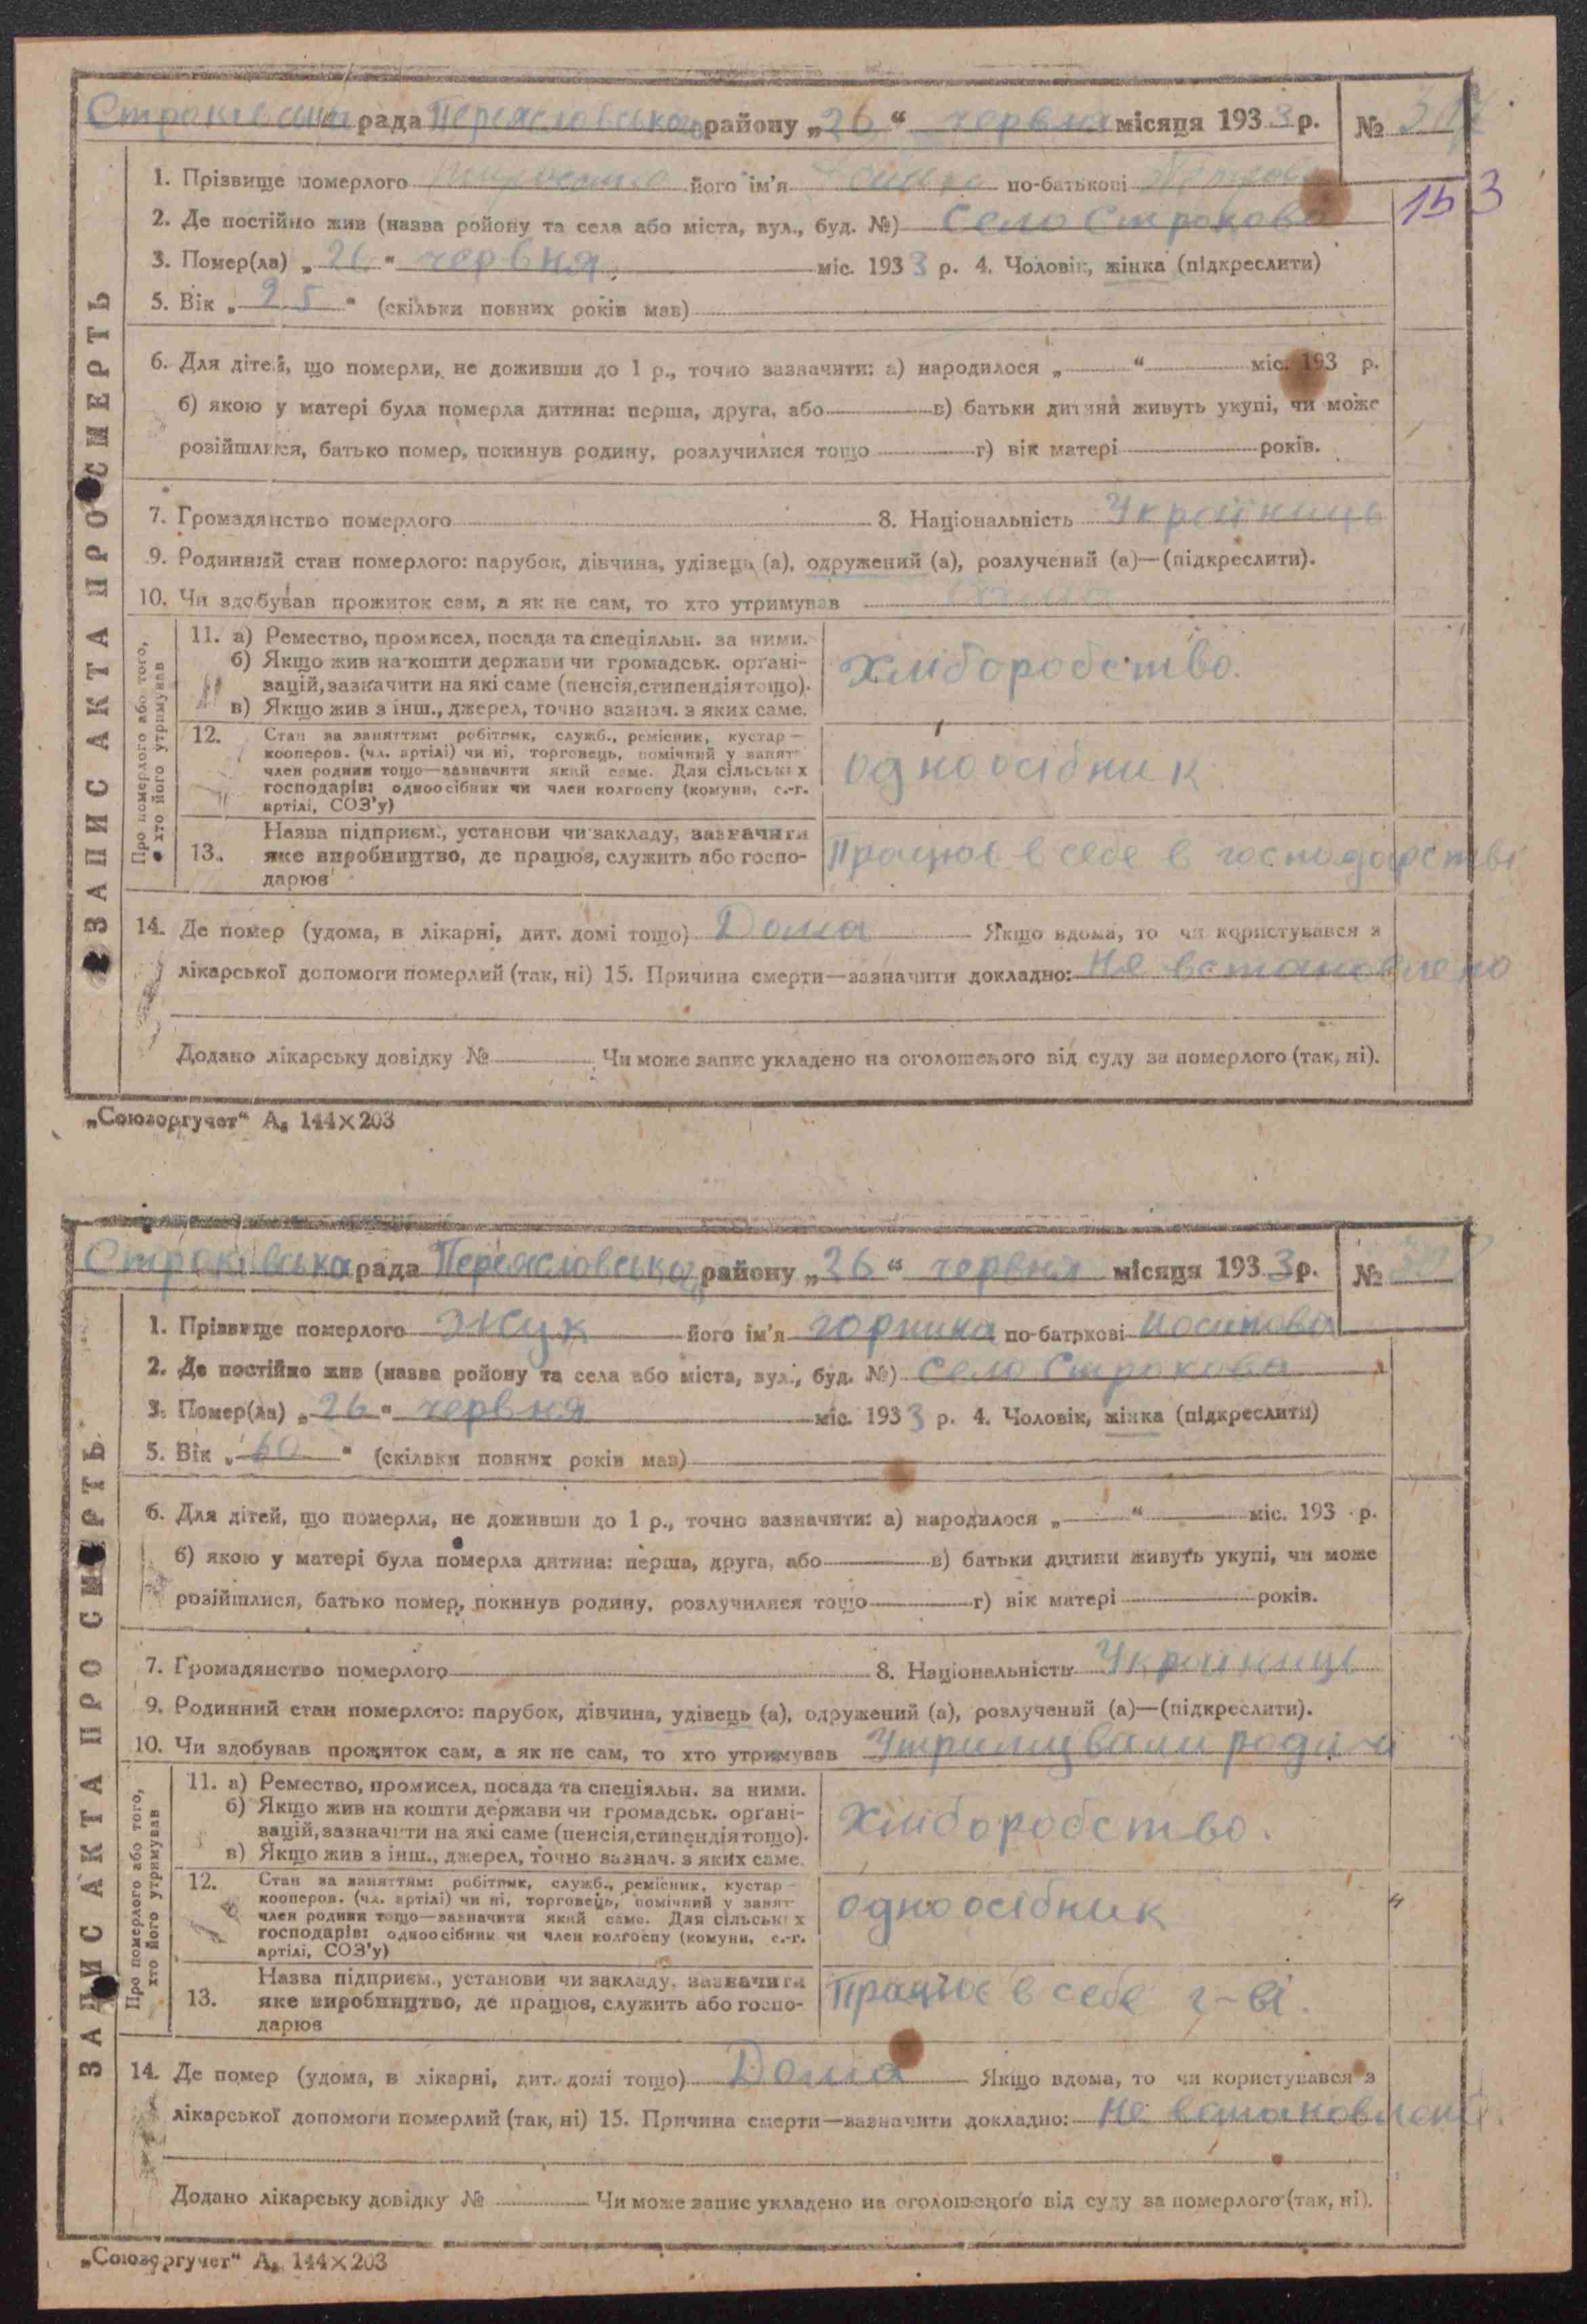 Строківська рада Переяславського району „26“ червня місяця 1933 р. №
153
1. Прізвище померлого його ім'я по-батькові
2. Де постійно жив (назва ройону та села або міста, вул., буд. №) село Строкова
3. Помер(ла) „26“ червня міс. 1933 р. 4. Чоловік, жінка (підкреслити)
5. Вік „ “ (скільки повних років мав)
6. Для дітей, що померли, не доживши до 1 р., точно зазначити: а) народилося „ “ міс. 193 р.
б) якою у матері була померла дитина: перша, друга, або в) батьки дитини живуть укупі, чи може
розійшлися, батько помер, покинув родину, розлучилися тощо г) вік матері років.
7. Громадянство померлого 8. Національність Українець
9. Родинний стан померлого: парубок, дівчина, удівець (а), одружений (а), розлучений (а)—(підкреслити).
10. Чи здобував прожиток сам, а як не сам, то хто утримував
Про померлого або того, хто його утримував
11. а) Ремество, промисел, посада та спеціяльн. за ними.
б) Якщо жив на кошти держави чи громадськ. орґані-
зацій, зазначити на які саме (пенсія, стипендія тощо).
в) Якщо жив з інш., джерел, точно зазнач. з яких саме.
Хліборобство.
12. Стан за заняттям: робітник, служб., ремісник, кустар —
кооперов. (чл. артілі) чи ні, торговець, помічний у занят
член родини тощо—зазначити який саме. Для сільських
господарів: одноосібник чи член колгоспу (комуни, с.-г.
артілі, СОЗ'у)
одноосібник
13. Назва підприєм., установи чи закладу, зазначити
яке виробництво, де працює, служить або госпо-
дарює
Працює в себе в господарстві
14. Де помер (удома, в лікарні, дит. домі тощо) Дома Якщо вдома, то чи користувався з
лікарської допомоги померлий (так, ні) 15. Причина смерти—зазначити докладно: Не встановлено
Додано лікарську довідку № Чи може запис укладено на оголошеного від суду за померлого (так, ні).
ЗАПИС АКТА ПРО СМЕРТЬ
„Союзоргучет“ А5 144×203
Строківська рада Переяславського району „26“ червня місяця 1933 р. №
1. Прізвище померлого Жук його ім'я горпина по-батькові Иосипова
2. Де постійно жив (назва ройону та села або міста, вул., буд. №) село Строкова
3. Помер(ла) „26“ червня міс. 1933 р. 4. Чоловік, жінка (підкреслити)
5. Вік „60“ (скільки повних років мав)
6. Для дітей, що померли, не доживши до 1 р., точно зазначити: а) народилося „ “ міс. 193 р.
б) якою у матері була померла дитина: перша, друга, або в) батьки дитини живуть укупі, чи може
розійшлися, батько помер, покинув родину, розлучилися тощо г) вік матері років.
7. Громадянство померлого 8. Національність Українець
9. Родинний стан померлого: парубок, дівчина, удівець (а), одружений (а), розлучений (а)—(підкреслити).
10. Чи здобував прожиток сам, а як не сам, то хто утримував Утримували родичи
Про померлого або того, хто його утримував
11. а) Ремество, промисел, посада та спеціяльн. за ними.
б) Якщо жив на кошти держави чи громадськ. орґані-
зацій, зазначити на які саме (пенсія, стипендія тощо).
в) Якщо жив з інш., джерел, точно зазнач. з яких саме.
Хліборобство.
12. Стан за заняттям: робітник, служб., ремісник, кустар —
кооперов. (чл. артілі) чи ні, торговець, помічний у занят
член родини тощо—зазначити який саме. Для сільських
господарів: одноосібник чи член колгоспу (комуни, с.-г.
артілі, СОЗ'у)
одноосібник
13. Назва підприєм., установи чи закладу, зазначити
яке виробництво, де працює, служить або госпо-
дарює
Працює в себе г-ві.
14. Де помер (удома, в лікарні, дит. домі тощо) Дома Якщо вдома, то чи користувався з
лікарської допомоги померлий (так, ні) 15. Причина смерти—зазначити докладно: Не встановлено
Додано лікарську довідку № Чи може запис укладено на оголошеного від суду за померлого (так, ні).
ЗАПИС АКТА ПРО СМЕРТЬ
„Союзоргучет“ А5 144×203